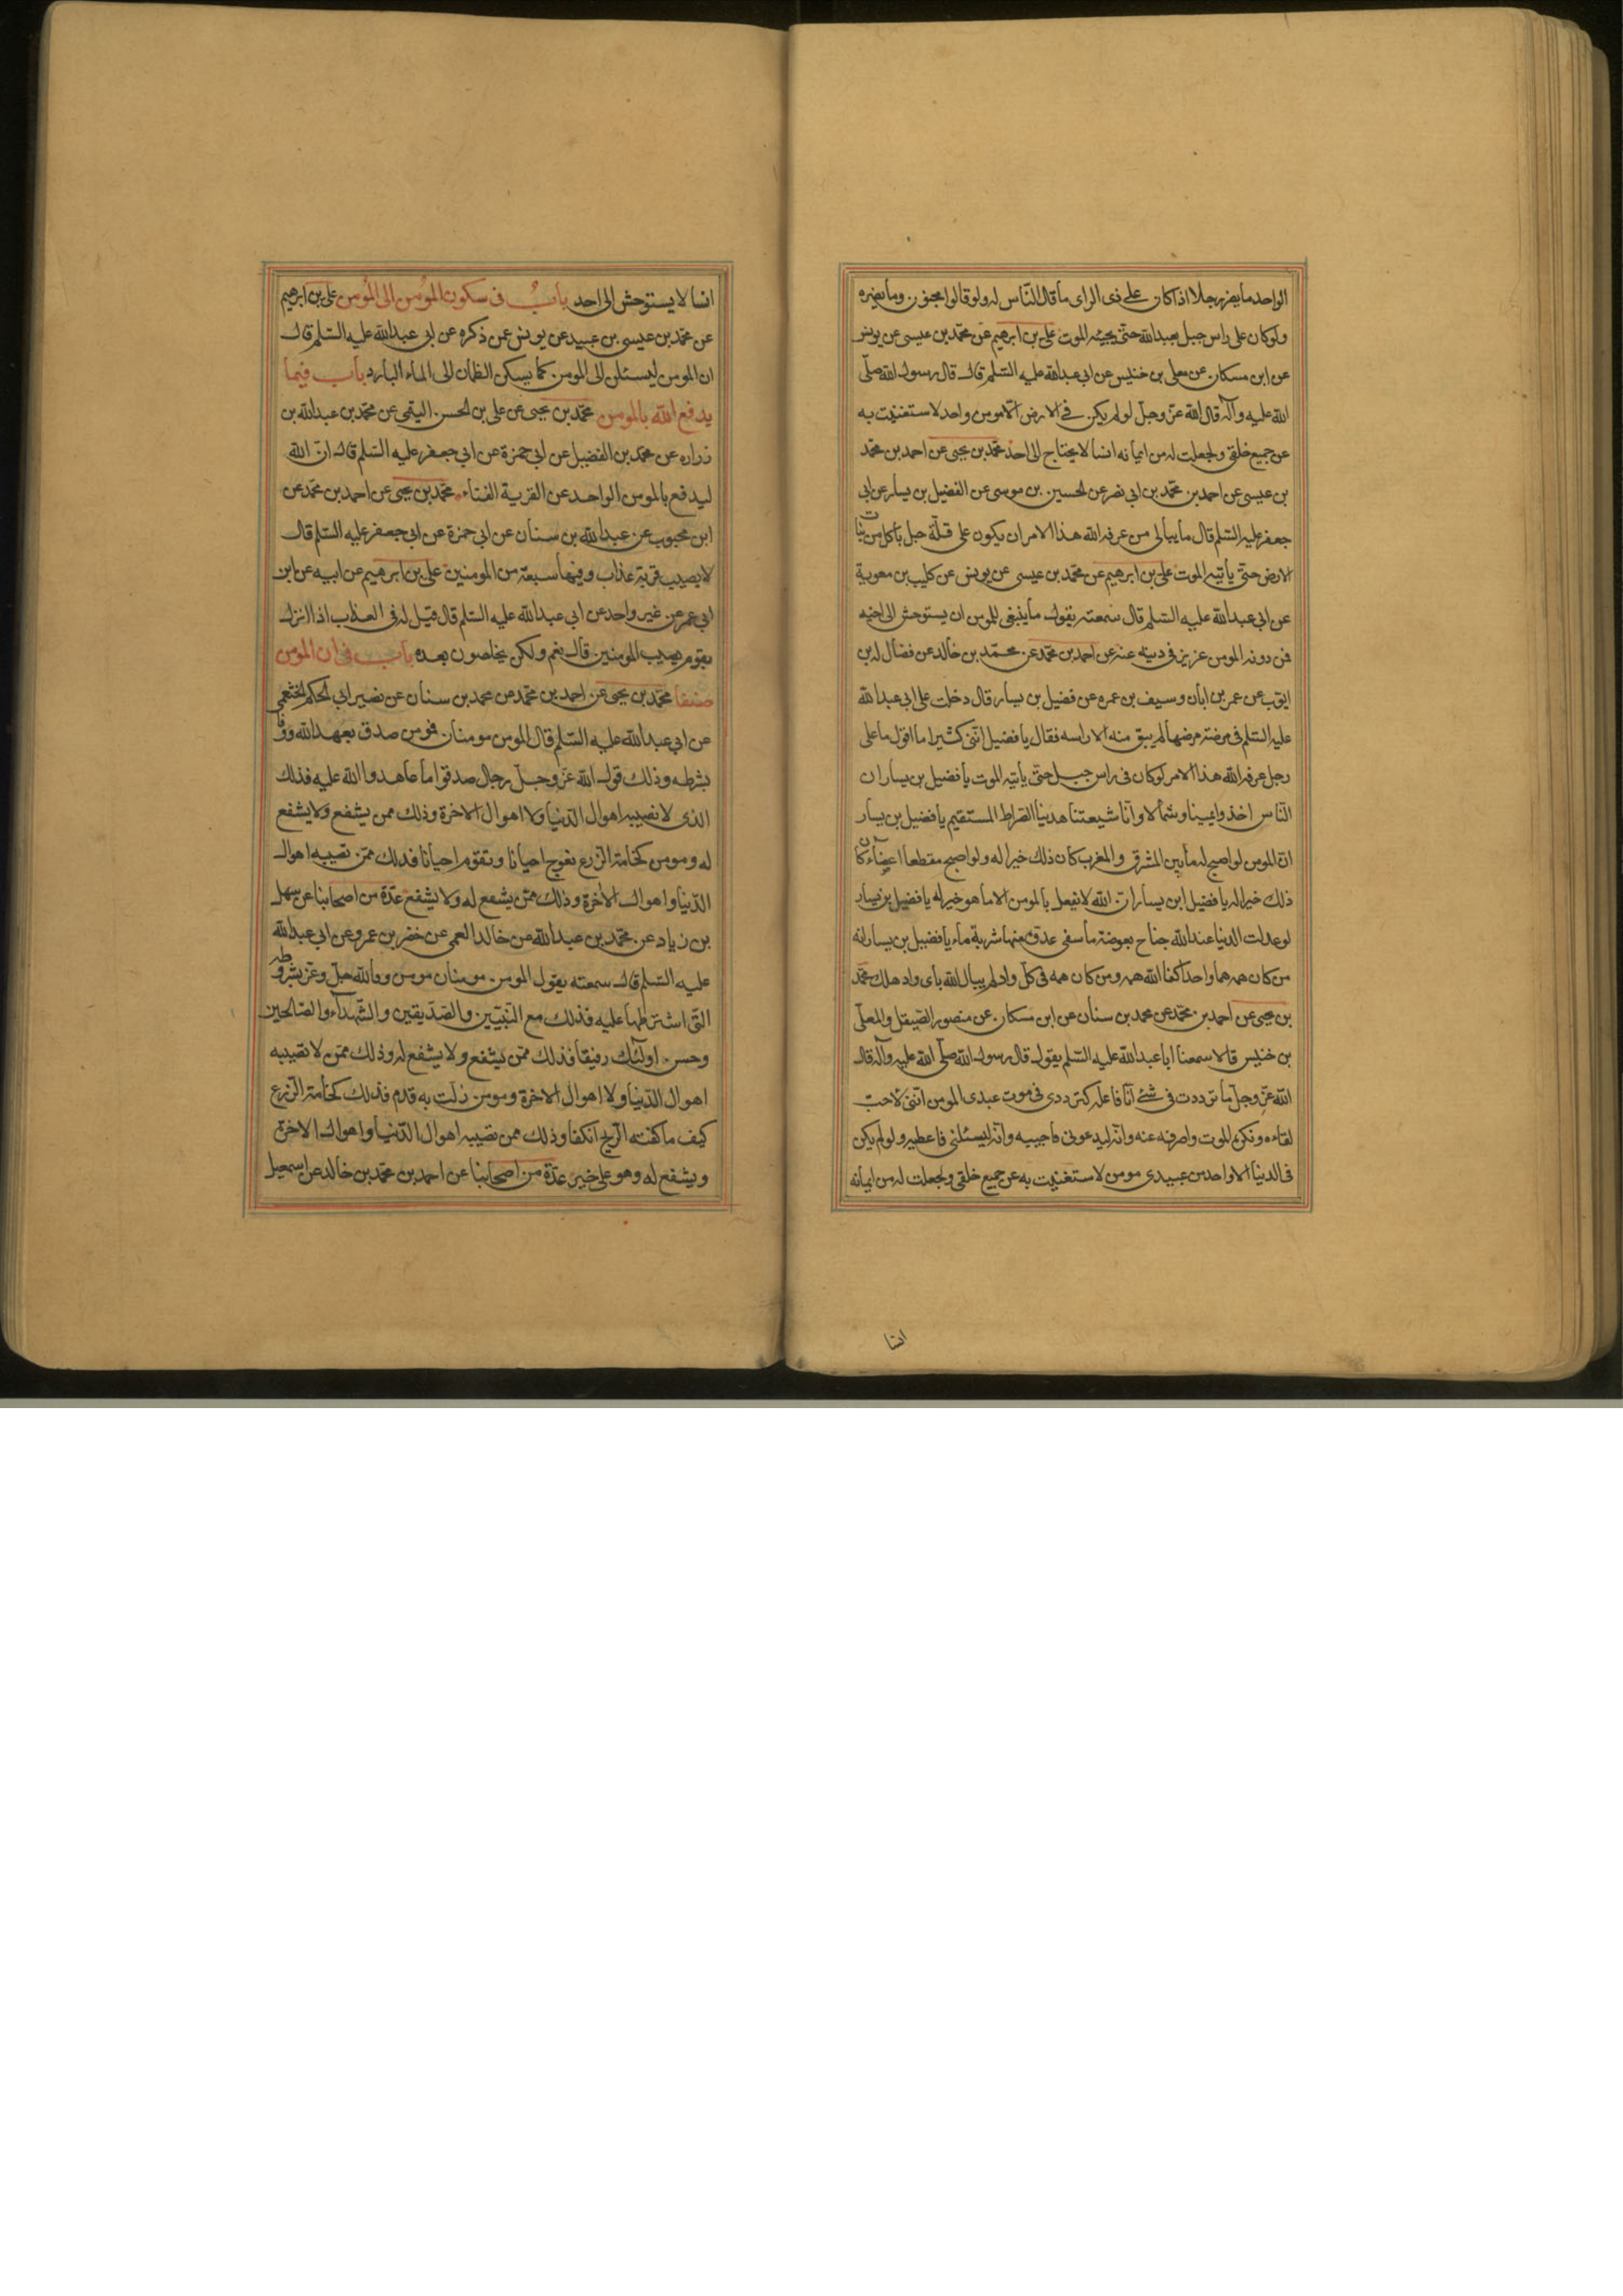 الواحد ما يضر رجلا اذا كان على ذى الراى ما قال الناس له ولو قالوا مجنون وما يضره
ولو كان على راس جبل يعبد الله حتى يجيئه الموت على بن ابرهيم عن محمد بن عيسى عن يونس
عن ابن مسكان عن معلى بن خنيس عن ابى عبد الله عليه السلم قال قال رسول الله صلى
الله عليه وآله قال الله عز وجل لو لم يكن فى الارض الا مومن واحد لاستغنيت به
عن جميع خلقى ولجعلت له من ايمانه انسا لا يحتاج الى احد محمد بن يحيى عن احمد بن محمد
بن عيسى عن احمد بن محمد بن ابى نصر عن الحسين بن موسى عن الفضيل بن يسار عن ابى
جعفر عليه السلم قال ما يبالى من عرفه الله هذا الامر ان يكون على قلة جبل ياكل من نبات
الارض حتى ياتيه الموت على بن ابرهيم عن محمد بن عيسى عن يونس عن كليب بن معوية
عن ابى عبد الله عليه السلم قال سمعته يقول ما ينبغى للمومن ان يستوحش الى اخيه
فمن دونه المومن عزيز فى دينه عنه عن احمد بن محمد عن محمد بن خالد عن فضالة بن
ايوب عن عمر بن ابان وسيف بن عمره عن فضيل بن يسار قال دخلت على ابى عبد الله
عليه السلم فى مرضة مرضها لم يبق منه الا راسه فقال يا فضيل اننى كثيرا ما اقول ما على
رجل عرفه الله هذا الامر لو كان فى راس جبل حتى ياتيه الموت يا فضيل بن يسار ان
الناس اخذوا يمينا وشمالا وانا شيعتنا هدينا الصراط المستقيم يا فضيل بن يسار
ان المومن لو اصبح له ما بين المشرق والمغرب كان ذلك خيرا له ولو اصبح مقطعا اعضاءه كان
ذلك خيرا له يا فضيل ابن يسار ان الله لا يفعل بالمومن الا ما هو خير له يا فضيل بن يسار
لو عدلت الدنيا عند الله جناح بعوضة ما سقى عدوه منها شربة ماء يا فضيل بن يسار انه
من كان همه هما واحدا كفا الله همه ومن كان همه فى كل واد لم يبال الله باى واد هلك محمد
بن يحيى عن احمد بن محمد عن محمد بن سنان عن ابن مسكان عن منصور الصيقل والمعلى
بن خنيس قالا سمعنا ابا عبد الله عليه السلم يقول قال رسول الله صلى الله عليه وآله قال
الله عز وجل ما ترددت فى شئ انا فاعله كترددى فى موت عبدى المومن اننى لاحب
لقاءه ويكره الموت واصرفه عنه وانه ليدعونى فاجيبه وانه ليسئلنى فاعطيه ولو لم يكن
فى الدنيا الا واحد من عبيدى مومن لاستغنيت به عن جميع خلقى ولجعلت له من ايمانه
انسا
انسا لا يستوحش الى احد باب فى سكون المومن الى المومن على بن ابرهيم
عن محمد بن عيسى بن عبيد عن يونس عمن ذكره عن ابى عبد الله عليه السلم قال
ان المومن ليسكن الى المومن كما يسكن الظمان الى الماء البارد باب فيما
يدفع الله بالمومن محمد بن يحيى عن على بن الحسن التيمى عن محمد بن عبد الله بن
زراره عن محمد بن الفضيل عن ابى حمزة عن ابى جعفر عليه السلم قال ان الله
ليدفع بالمومن الواحد عن القرية الفناء محمد بن يحيى عن احمد بن محمد عن
ابن محبوب عن عبد الله بن سنان عن ابى حمزة عن ابى جعفر عليه السلم قال
لا يصيب قرية عذاب وفيها سبعة من المومنين على بن ابرهيم عن ابيه عن ابن
ابى عمير عن غير واحد عن ابى عبد الله عليه السلم قال قيل له فى العذاب اذا انزل
بقوم يصيب المومنين قال نعم ولكن يخلصون بعده باب فى ان المومن
صنفان محمد بن يحيى عن احمد بن محمد عن محمد بن سنان عن نصير ابى الحكم الخثعمى
عن ابى عبد الله عليه السلم قال المومن مومنان فمومن صدق بعهد الله ووفا
بشرطه وذلك قول الله عز وجل رجال صدقوا ما عاهدوا الله عليه فذلك
الذى لا تصيبه اهوال الدنيا ولا اهوال الاخرة وذلك ممن يشفع ولا يشفع
له ومومن كخامة الزرع تعوج احيانا وتقوم احيانا فذلك ممن تصيبه اهوال
الدنيا واهوال الاخرة وذلك ممن يشفع له ولا يشفع عدة من اصحابنا عن سهل
بن زياد عن محمد بن عبد الله عن خالد العمى عن خضر بن عمرو عن ابى عبد الله
عليه السلم قال سمعته يقول المومن مومنان مومن وفا لله جل وعز بشروطه
التى اشترطها عليه فذلك مع النبيين والصديقين والشهداء والصالحين
وحسن اولئك رفيقا فذلك ممن يشفع ولا يشفع له وذلك ممن لا تصيبه
اهوال الدنيا ولا اهوال الاخرة ومومن زلت به قدم فذلك كخامة الزرع
كيف ما كفته الريح انكفا وذلك ممن تصيبه اهوال الدنيا واهوال الاخرة
ويشفع له وهو على خير عدة من اصحابنا عن احمد بن محمد بن خالد عن اسمعيل